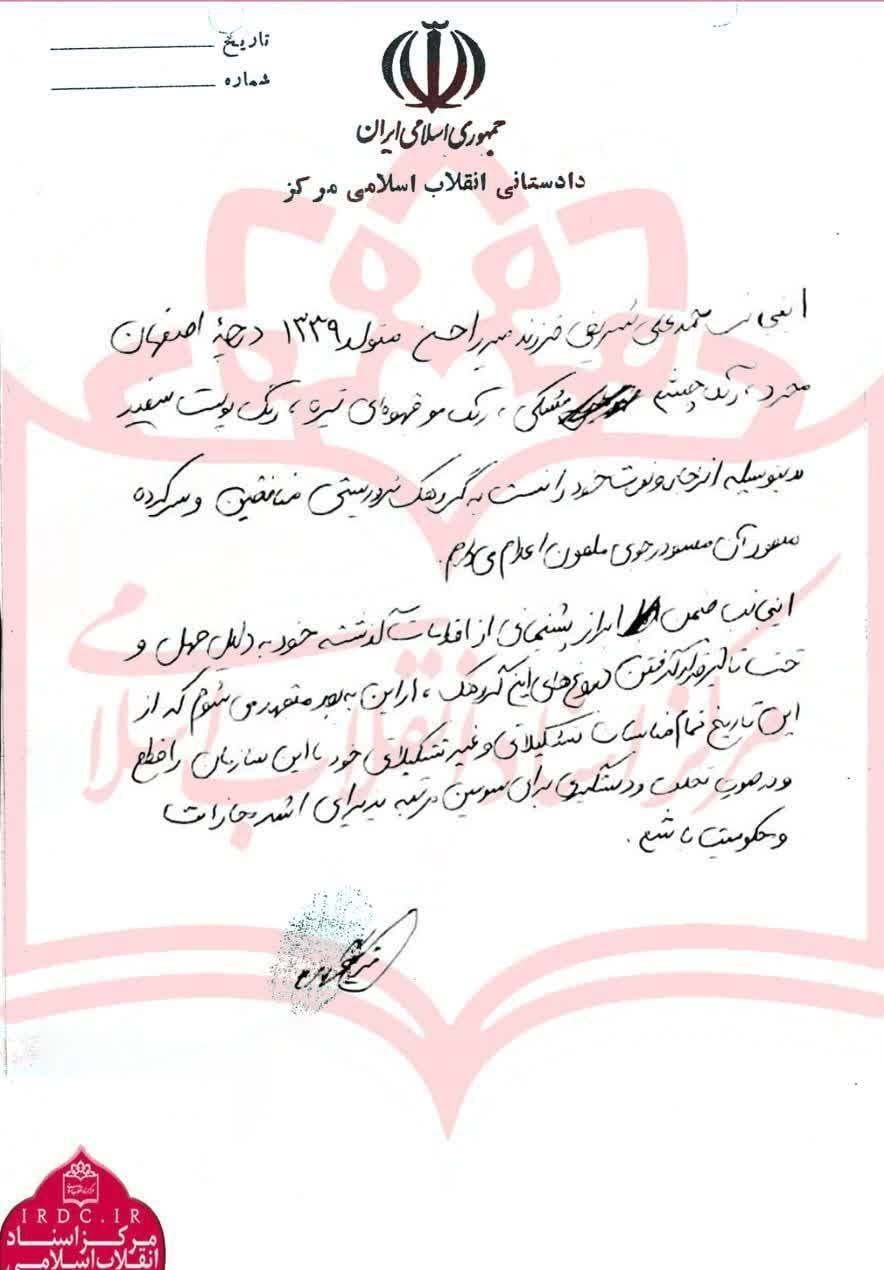 تاریخ
شماره
جمهوری اسلامی ایران
دادستانی انقلاب اسلامی مرکز
اینجانب محمدعلی شریفی فرزند میرزاحسن متولد ۱۳۳۹ درچهٔ اصفهان
مجرد، رنگ چشم مشکی، رنگ مو قهوه‌ای تیره، رنگ پوست سفید
بدینوسیله انزجار و نفرت خود را نسبت به گروهک تروریستی منافقین و سرکرده
آن مسعود رجوی ملعون اعلام می‌دارم.
اینجانب ضمن ابراز پشیمانی از اقدامات گذشته خود به دلیل جهل و
تحت تاثیر قرار گرفتن دروغ‌های این گروهک، از این به بعد متعهد می‌شوم که از
این تاریخ تمام مناسبات تشکیلاتی و غیر تشکیلاتی خود با این سازمان را قطع
و در صورت تخلف و دستگیری برای سومین مرتبه پذیرای اشد مجازات
و محکومیت باشم.
مرکز اسناد انقلاب اسلامی
IRDC.IR
مرکز اسناد
انقلاب اسلامی